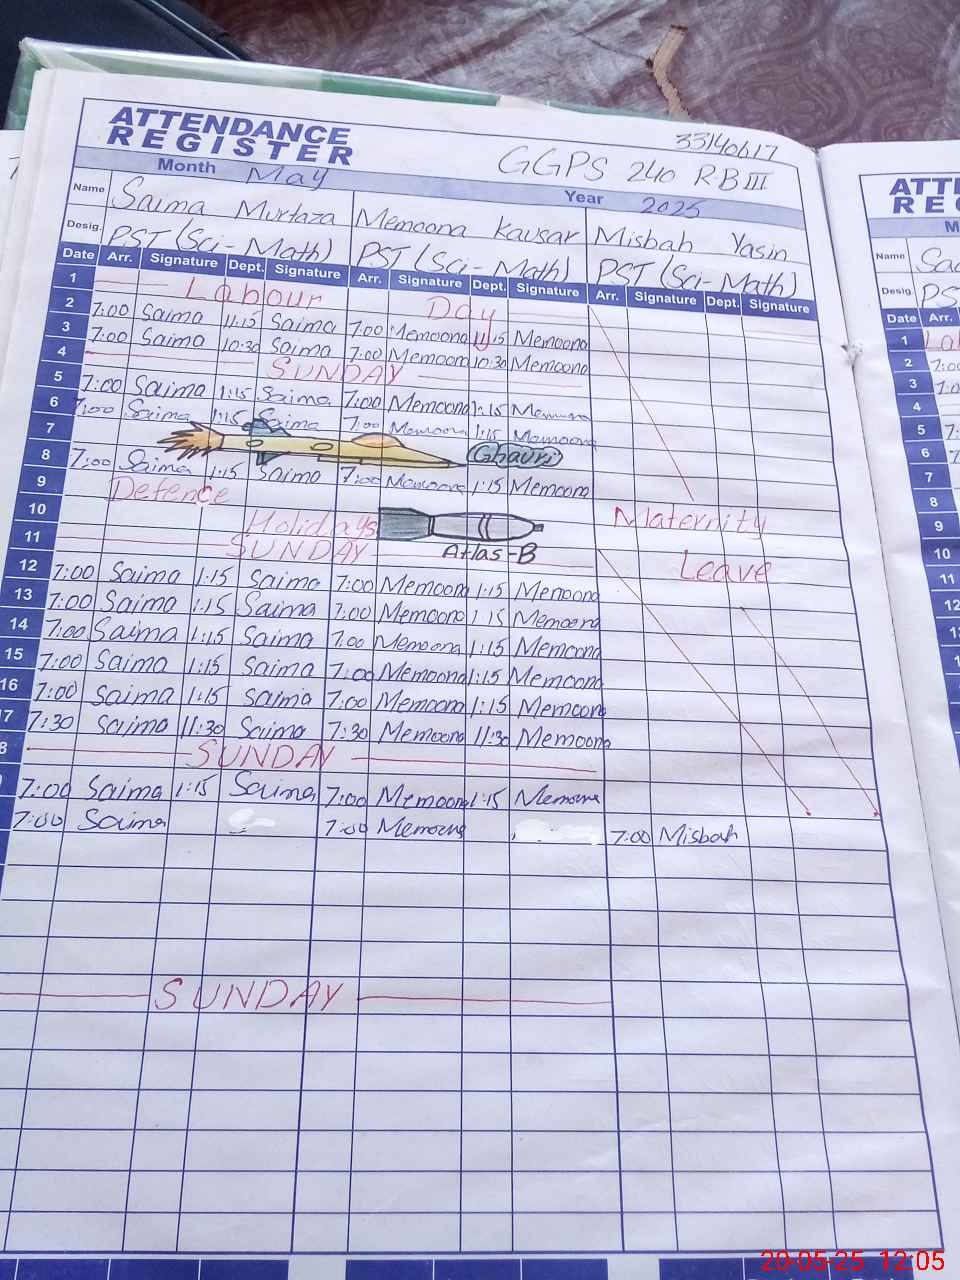 ATTENDANCE
REGISTER
33140617
GGPS 240 R.B III
Month May Year 2025
Name Saima Murtaza Memoona Kausar Misbah Yasin
Desig. PST (Sci-Math) PST (Sci-Math) PST (Sci-Math)
Date Arr. Signature Dept. Signature Arr. Signature Dept. Signature Arr. Signature Dept. Signature
1 Labour Day
2 7:00 Saima 11:15 Saima 7:00 Memoona 11:15 Memoona
3 7:00 Saima 10:30 Saima 7:00 Memoona 10:30 Memoona
4 SUNDAY
5 7:00 Saima 1:15 Saima 7:00 Memoona 1:15 Memoona
6 7:00 Saima 1:15 Saima 7:00 Memoona 1:15 Memoona
7 Ghauri
8 7:00 Saima 1:15 Saima 7:00 Memoona 1:15 Memoona
9 Defence
10 Holidays Maternity
11 SUNDAY Atlas-B Leave
12 7:00 Saima 1:15 Saima 7:00 Memoona 1:15 Memoona
13 7:00 Saima 1:15 Saima 7:00 Memoona 1:15 Memoona
14 7:00 Saima 1:15 Saima 7:00 Memoona 1:15 Memoona
15 7:00 Saima 1:15 Saima 7:00 Memoona 1:15 Memoona
16 7:00 Saima 1:15 Saima 7:00 Memoona 1:15 Memoona
7 7:30 Saima 11:30 Saima 7:30 Memoona 11:30 Memoona
8 SUNDAY
7:00 Saima 1:15 Saima 7:00 Memoona 1:15 Memoona
7:00 Saima 7:00 Memoona 7:00 Misbah
SUNDAY
ATT
RE
M
Name
Desig. PS
Date Arr.
1
2 7:0
3
4
5 7:
6
7
8
9
10
11
12
20-05-25 12:05